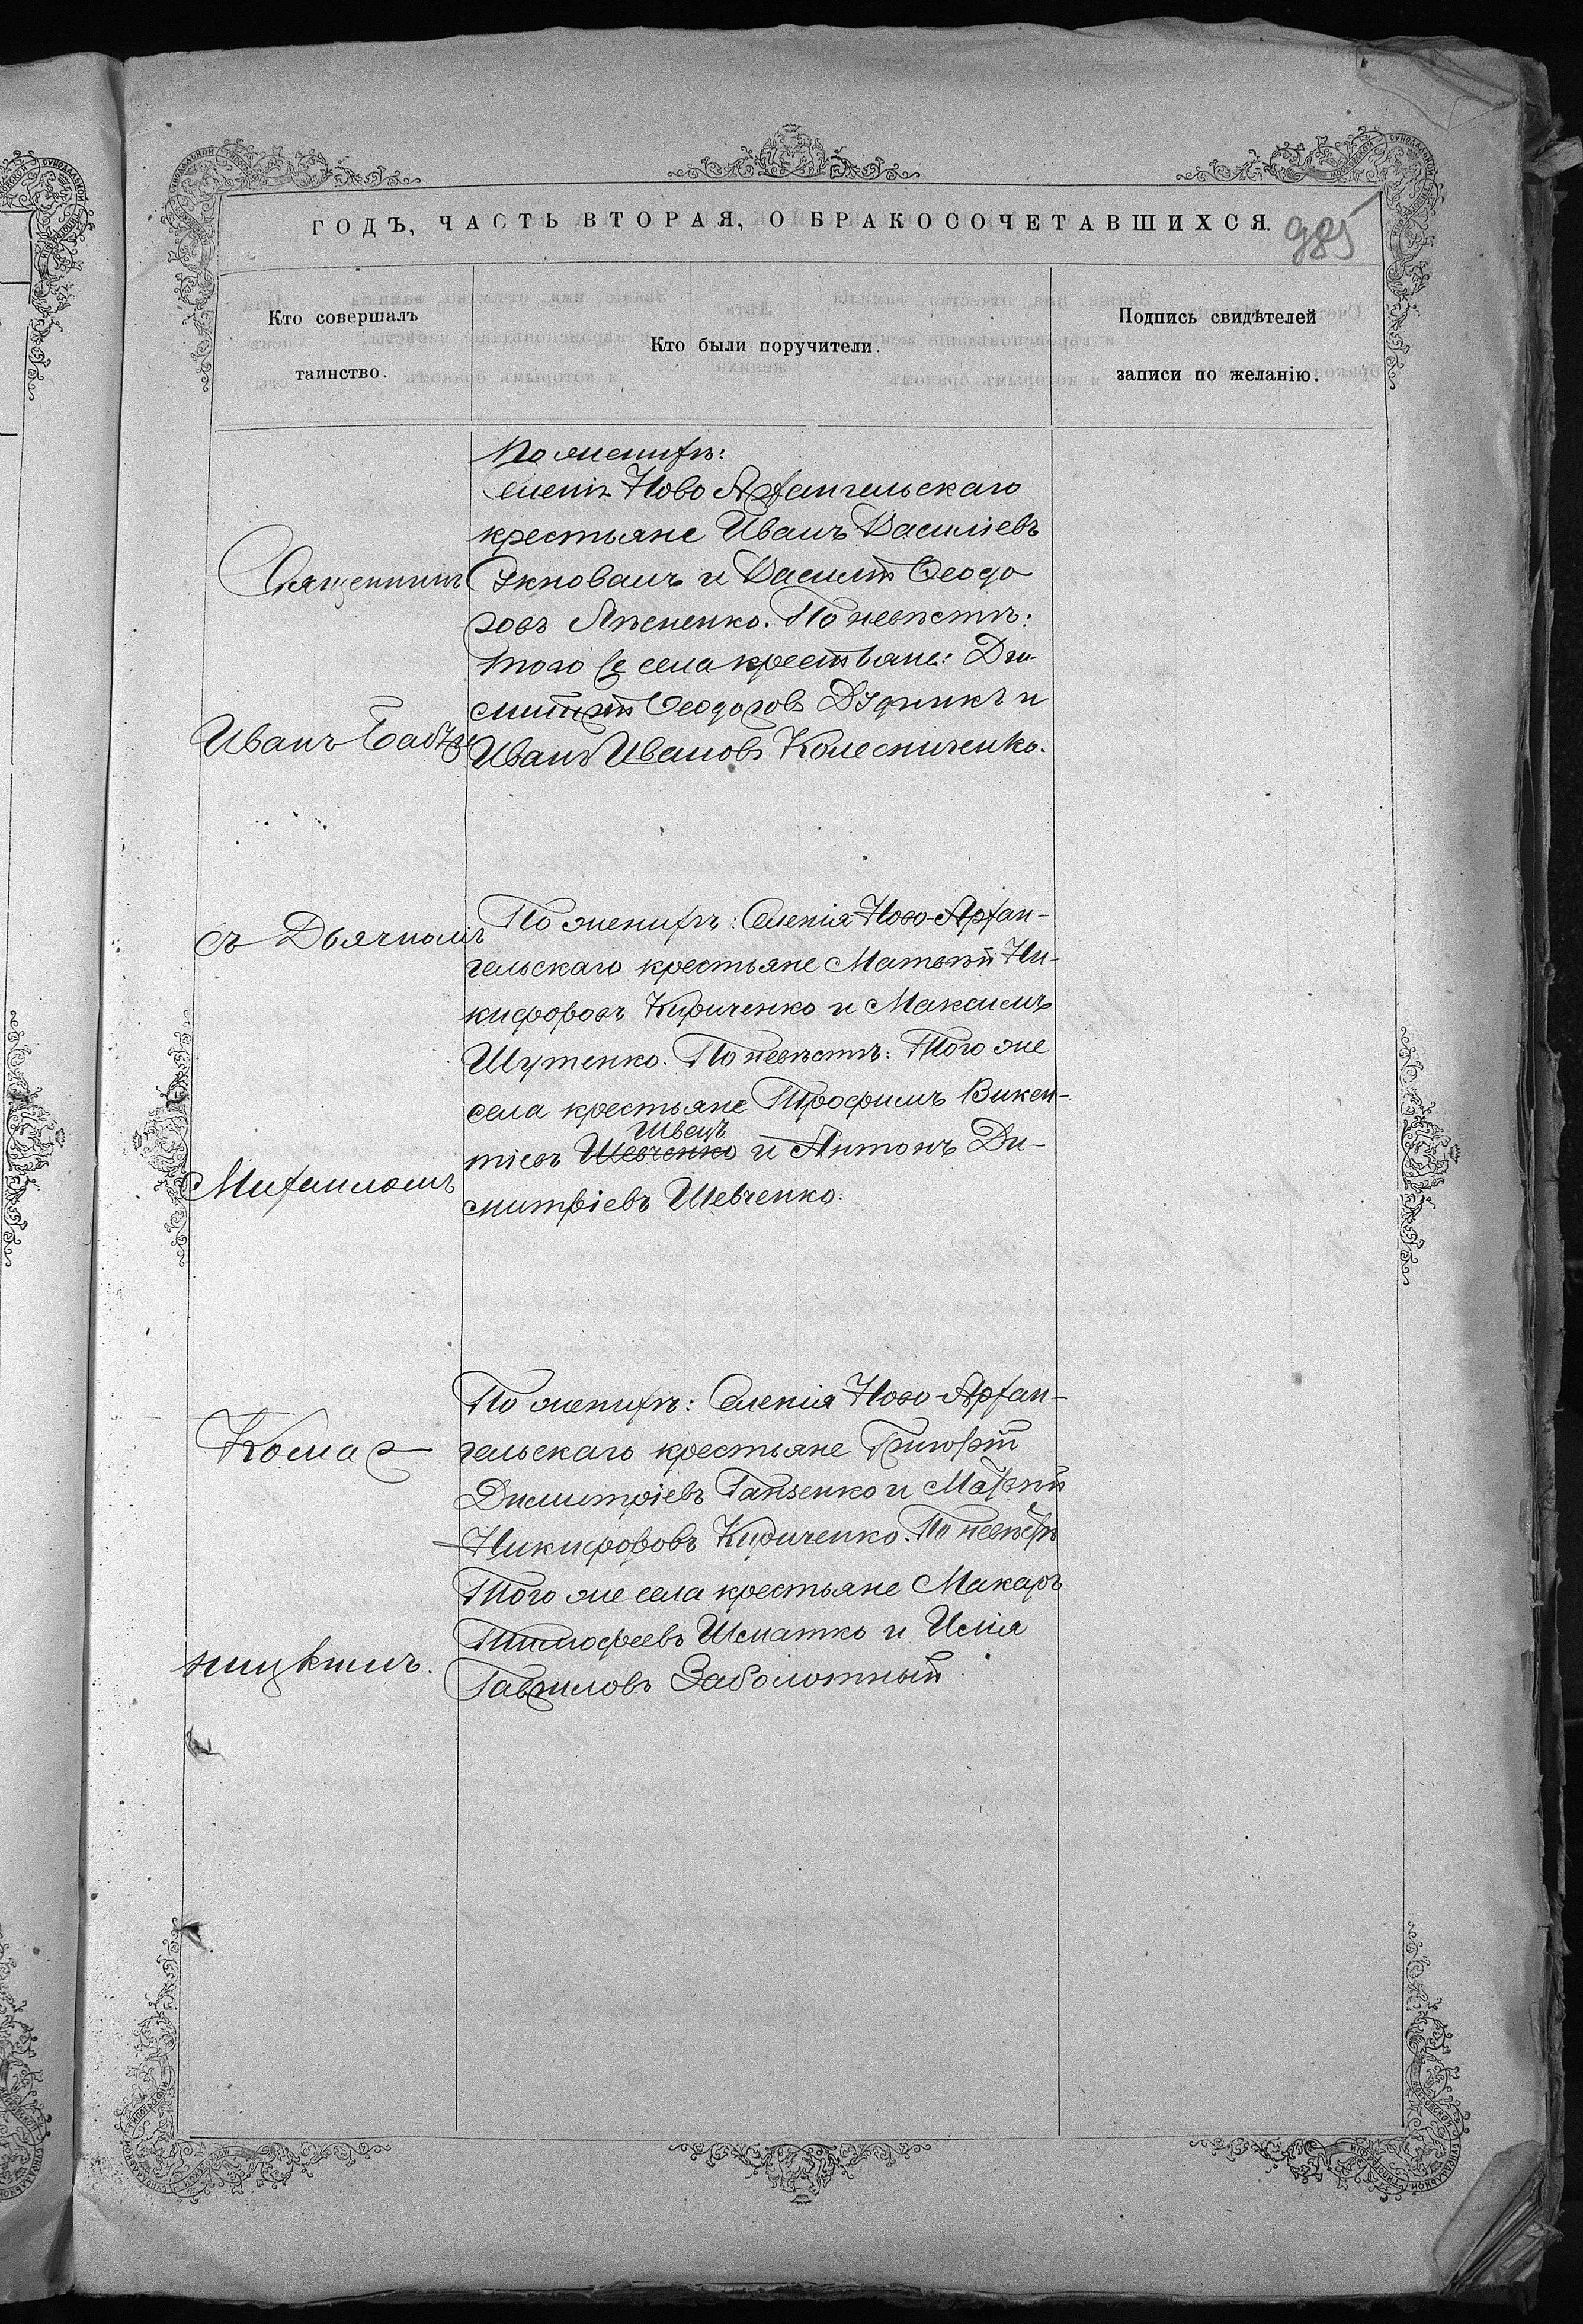 ГОДЪ, ЧАСТЬ ВТОРАЯ, О БРАКОСОЧЕТАВШИХСЯ.
985
Кто совершалъ
таинство.
Кто были поручители.
Подпись свидѣтелей
записи по желанію.
По женихѣ:
Селенія Ново Архангельскаго
крестьяне Иванъ Василіевъ
и Василій Ѳеодо
ровъ Яценко. По невѣстѣ:
того же села крестьяне: Ди-
митрій Ѳеодоровъ Дудникъ и
Иванъ Ивановъ Колесниченко.
Священникъ
Иванъ
съ Дьячкомъ
Михаиломъ
Комар
ницкимъ.
По женихѣ: Селенія Ново-Архан-
гельскаго крестьяне Матвѣй Ни-
кифоровъ Кириченко и Максимъ
Шутенко. По невѣстѣ: Того же
села крестьяне Трофимъ Викен-
Швецъ
тіевъ Шевченко и Антонъ Ди-
митріевъ Шевченко.
По женихѣ: Селенія Ново-Архан-
гельскаго крестьяне Григорій
Димитріевъ Ганзенко и Матвѣй
Никифоровъ Кириченко. По невѣстѣ
Того же села крестьяне Макаръ
Тимофеевъ Шматко и Илія
Гавриловъ Заболотный.